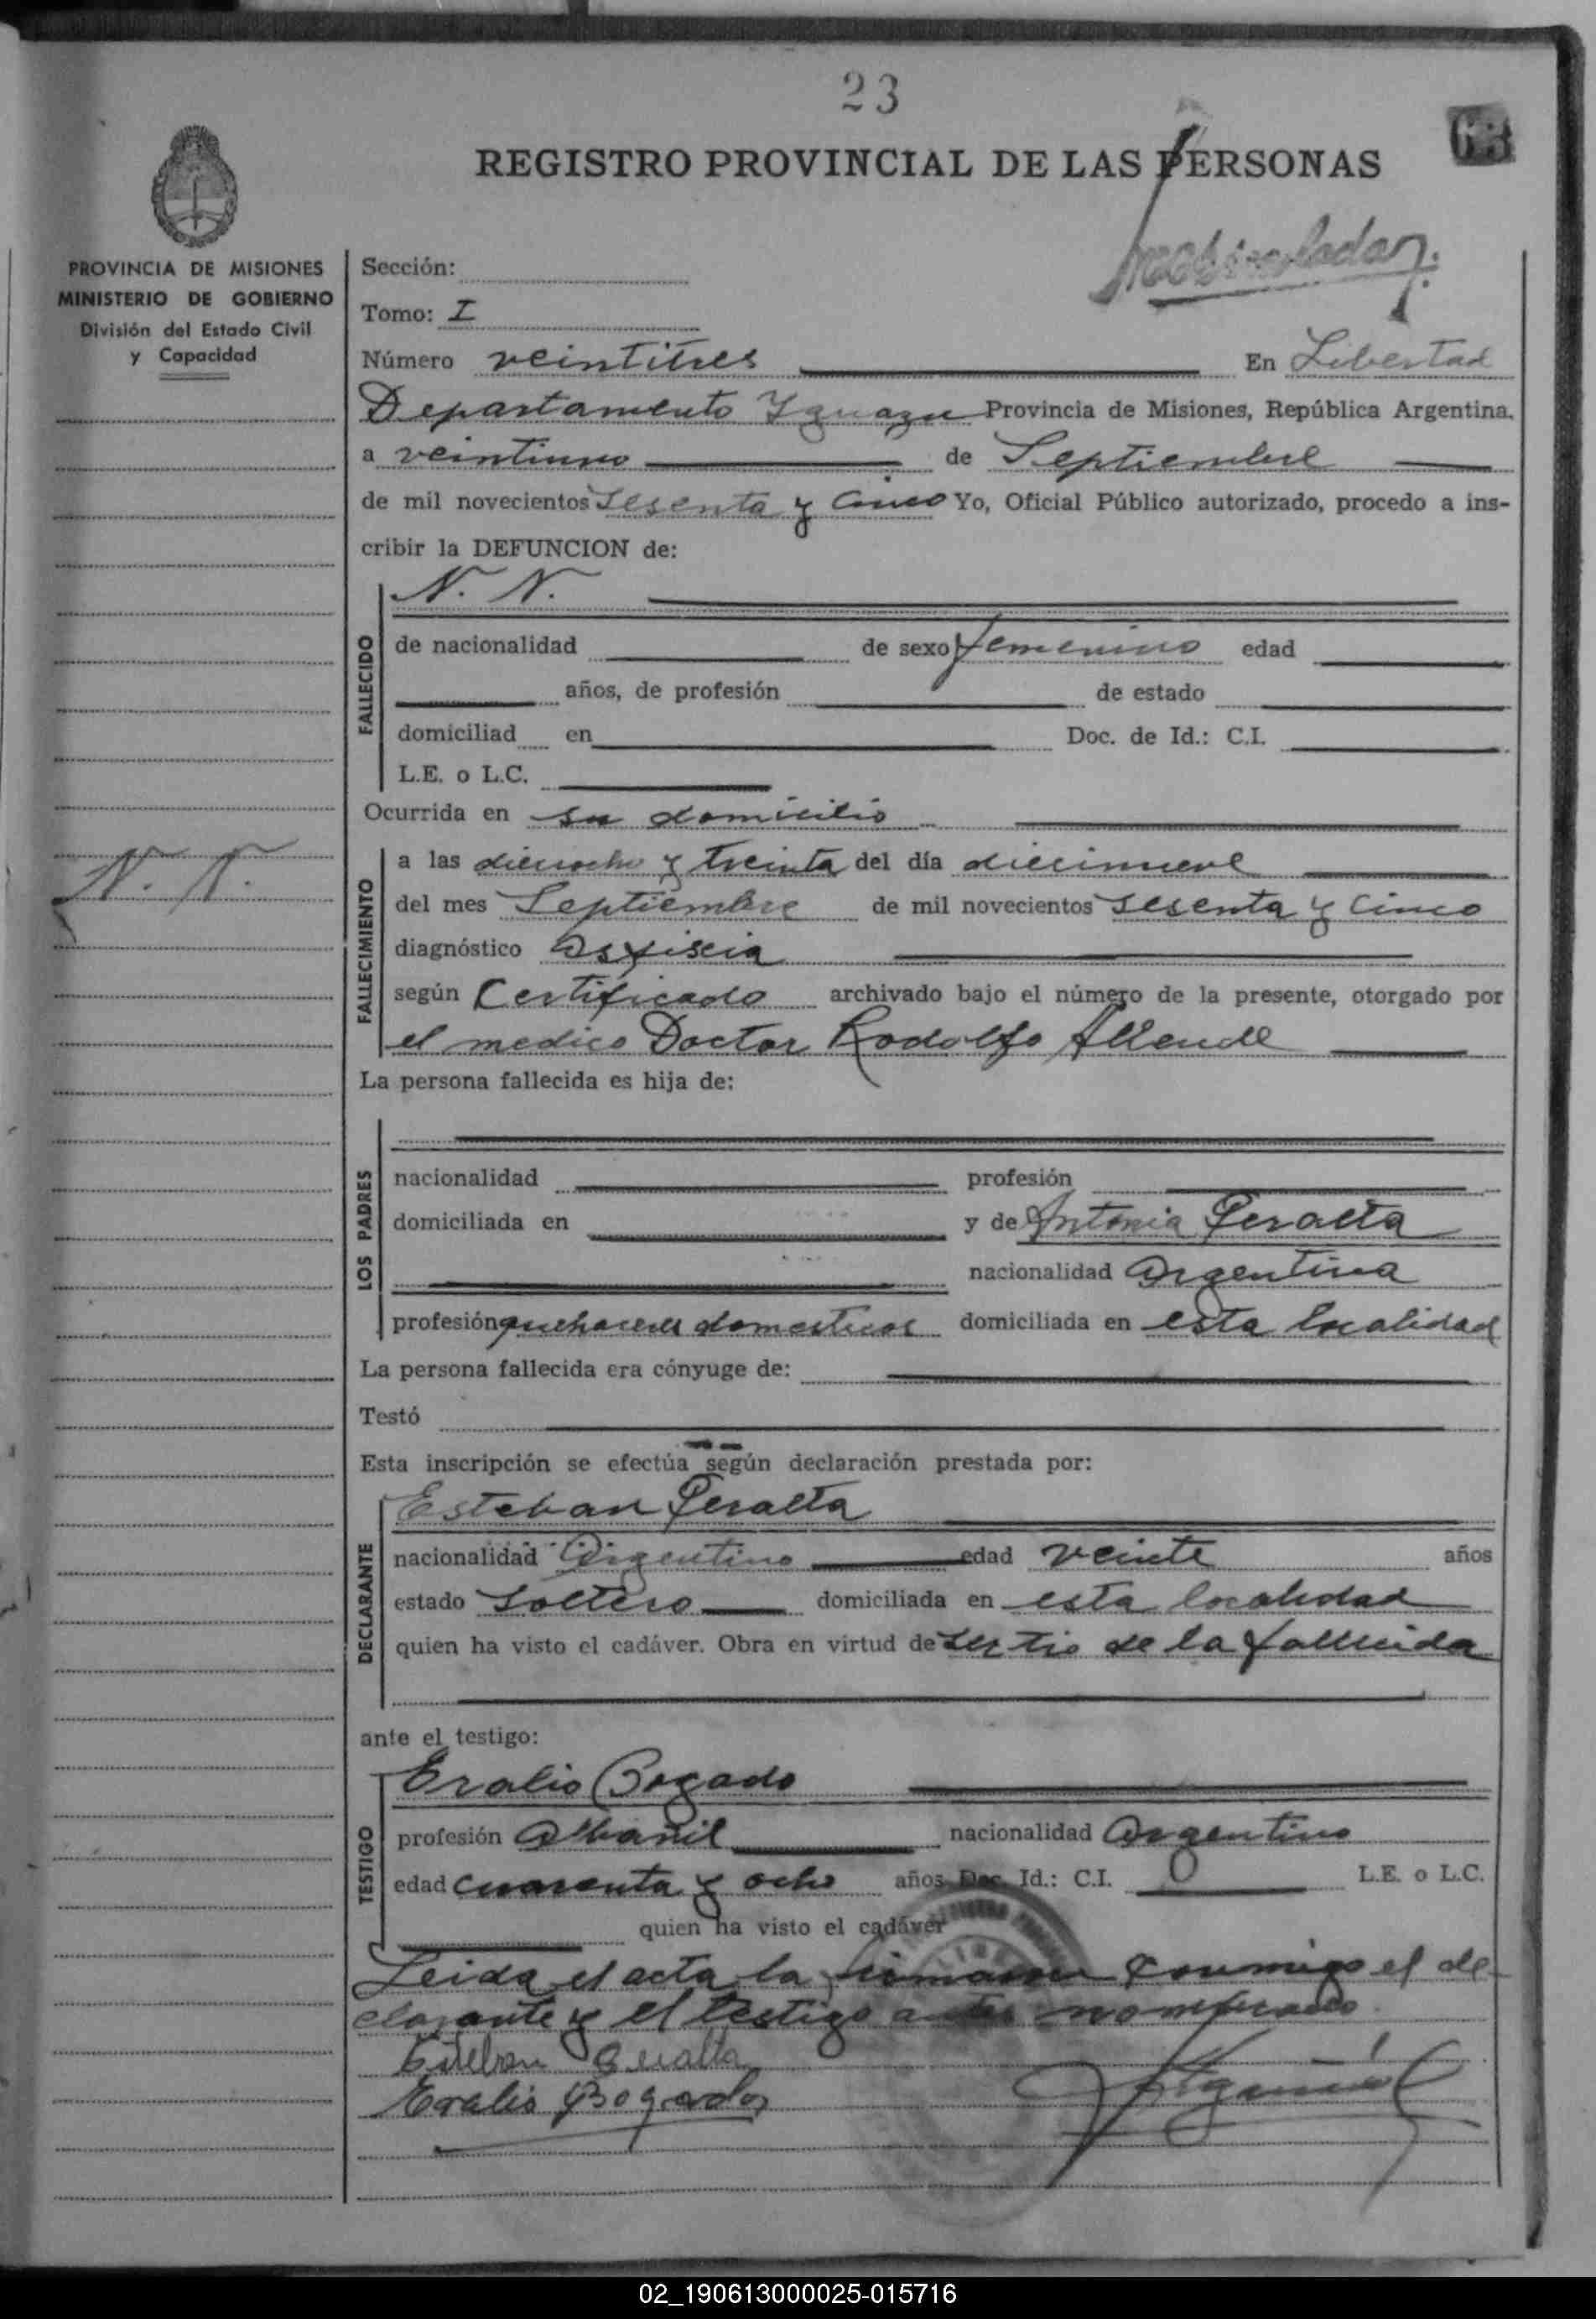 23
63
REGISTRO PROVINCIAL DE LAS PERSONAS
PROVINCIA DE MISIONES
MINISTERIO DE GOBIERNO
División del Estado Civil
y Capacidad
Sección:
Tomo: I
Número veintitres En Libertad
Departamento Yguazu Provincia de Misiones, República Argentina,
a veintiuno de Septiembre
de mil novecientos Sesenta y Cinco Yo, Oficial Público autorizado, procedo a ins-
cribir la DEFUNCION de:
FALLECIDO
N. N.
de nacionalidad de sexo femenino edad
años, de profesión de estado
domiciliad en Doc. de Id.: C.I.
L.E. o L.C.
Ocurrida en su domicilio
N. N.
FALLECIMIENTO
a las dieciocho y treinta del día diecinueve
del mes Septiembre de mil novecientos Sesenta y Cinco
diagnóstico Asfixia
según Certificado archivado bajo el número de la presente, otorgado por
el medico Doctor Rodolfo Allende
La persona fallecida es hija de:
LOS PADRES
nacionalidad profesión
domiciliada en y de Antonia Peralta
nacionalidad Argentina
profesión quehaceres domesticos domiciliada en esta localidad
La persona fallecida era cónyuge de:
Testó
Esta inscripción se efectúa según declaración prestada por:
DECLARANTE
Esteban Peralta
nacionalidad Argentino edad veinte años
estado Soltero domiciliada en esta localidad
quien ha visto el cadáver. Obra en virtud de ser tio de la fallecida
ante el testigo:
TESTIGO
Eralio Bogado
profesión Albañil nacionalidad Argentino
edad cuarenta y ocho años Doc. Id.: C.I. L.E. o L.C.
quien ha visto el cadáver
Leida el acta la firman conmigo el de-
clarante y el testigo antes nombrado.
Esteban Peralta
Eralio Bogado
02_190613000025-015716